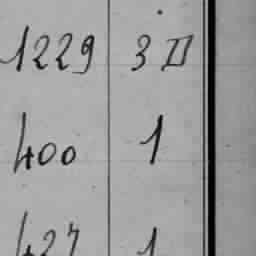 1229 3 II
400 1
427 1